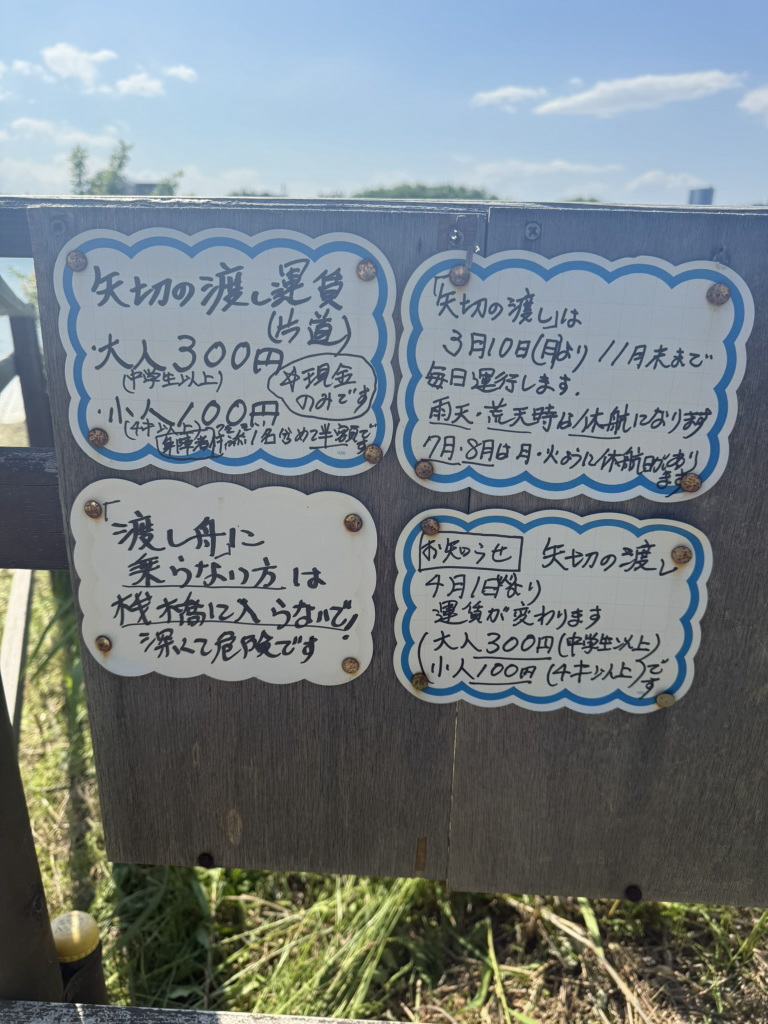 矢切の渡し運賃
(片道)
・大人300円
(中学生以上)
※現金
のみです
・小人100円
(4才以上)
1名含めて半額です
「矢切の渡し」は
3月10日(月)より 11月末まで
毎日運行します.
雨天・荒天時は休航になります
7月・8月は月・火ように休航日があり
ます
「渡し舟」に
乗らない方は
桟橋に入らないで!
深くて危険です
お知らせ 矢切の渡し
4月1日より
運賃が変わります
(大人300円(中学生以上)
小人100円(4才以上)で
す